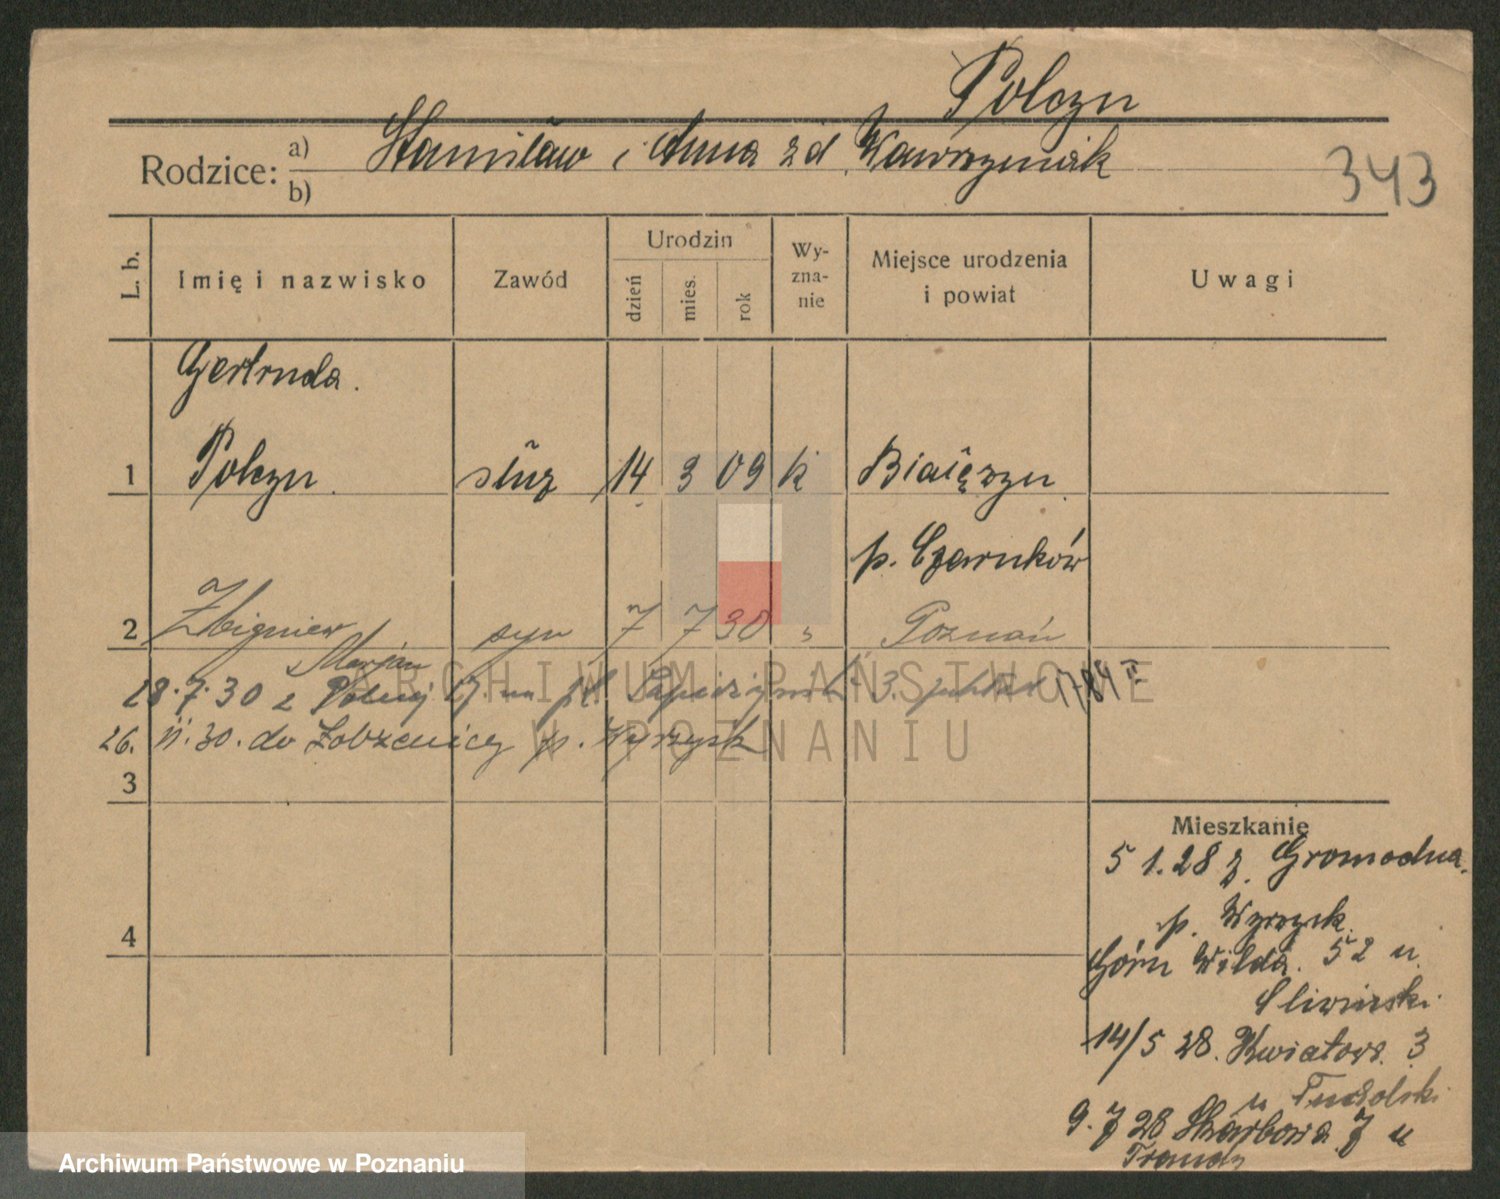 Polczn
Rodzice: a) b) Stanisław i Anna zd. Wawrzyniak
343
L. b.
Imię i nazwisko
Zawód
Urodzin
dzień mies. rok
Wy-
zna-
nie
Miejsce urodzenia
i powiat
Uwagi
Gertruda.
1 Polczn służ 14 3 09 k
p. Czarnków
2 Zbigniew syn 7 7 30 " Poznań
Marjan
28.7.30 z Polnej 17. na pl. 3. 1784 II
26. 11. 30. do Łobżenicy p. Wyrzysk
3
Mieszkanie
5 1.28 z. Gromadna.
4
p. Wyrzysk.
Górn Wilda. 52 u.
Sliwinski.
14/5 28. Kwiatowa. 3
u Tucholski.
9. 7 28 Skarbowa 7 u
ARCHIWUM PAŃSTWOWE
W POZNANIU
Archiwum Państwowe w Poznaniu